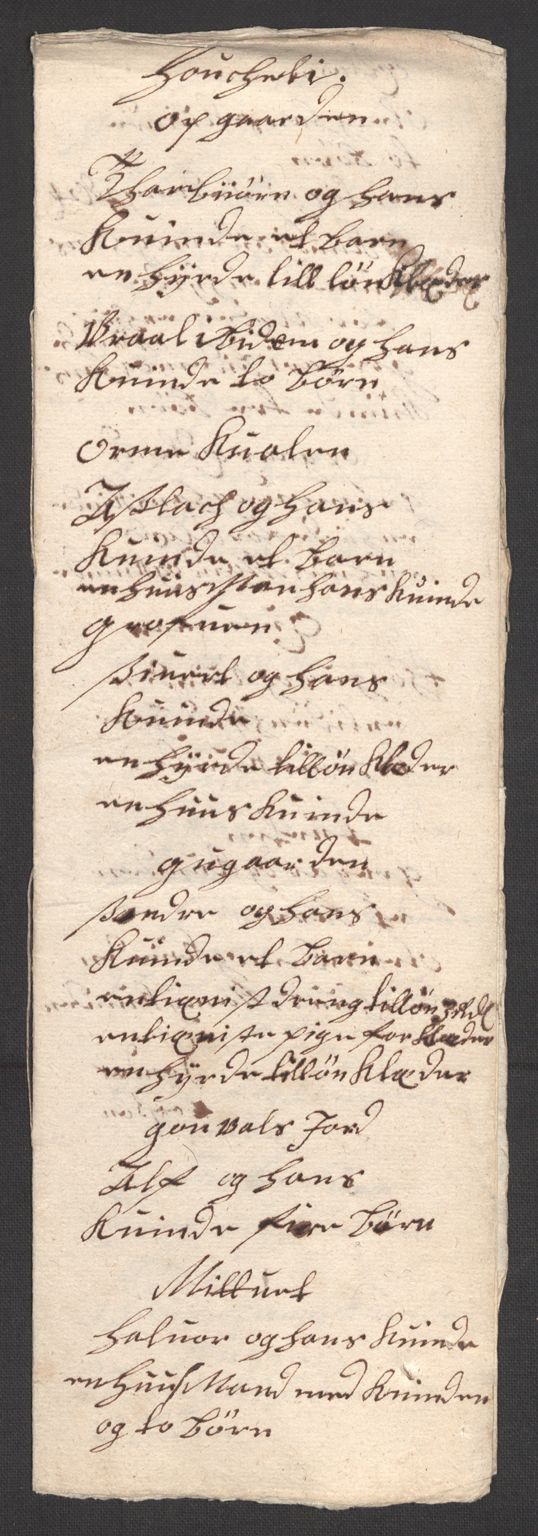 Houchebi.
op gaarden
Tharbiörn og hans
Kuinde et barn
en hyrde till lön Klæder
Vraal ibidem og hans
Kuinde to Børn
orme Kualen
Asslach og hans
Kuinde et barn
en huus hans Kuinde
Siuert og hans
Kuinde
en hyrde till lön Klæder
en huus Kuinde
gugaarden
Sondre og hans
Kuinde et barn
en tieniste dreng till lön 3 Rdl
en tieniste pige for Klæder
en hyrde till lön Klæder
gonvals Jord
Alf og hans
Kuinde fire Børn
Mittuet
Haluor og hans Kuinde
en huus Mand med Kuinden
og to børn